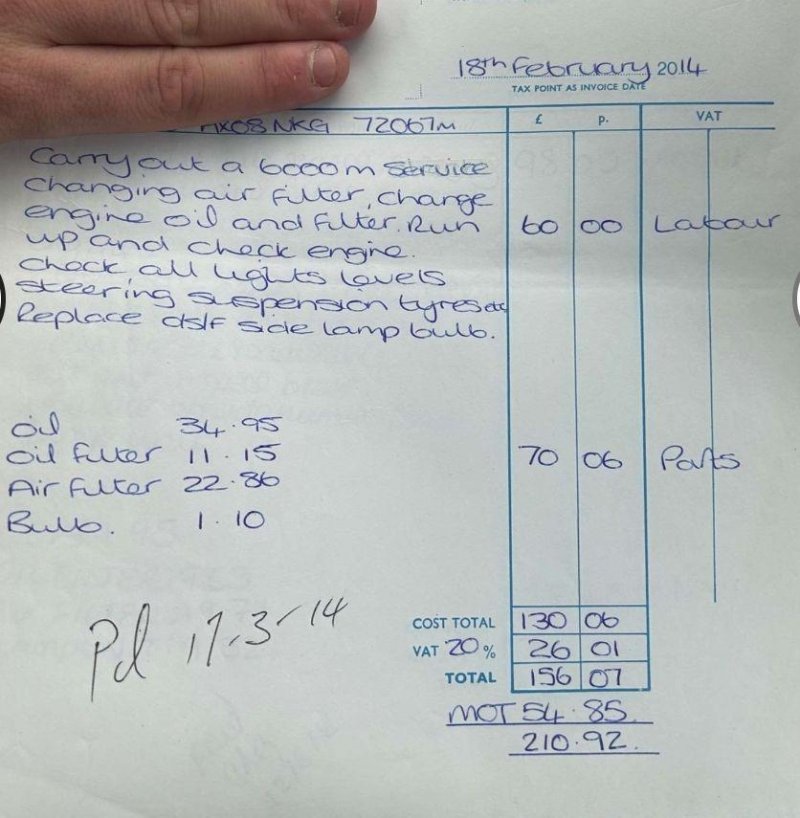 18th February 2014
TAX POINT AS INVOICE DATE
HX08NKG 72067m £ p. VAT
Carry out a 6000m Service
changing air filter, change
engine oil and filter. Run 60 00 Labour
up and check engine.
check all lights levels
steering suspension tyres etc
Replace d/s/f side lamp bulb.
Oil 34.95
Oil Filter 11.15 70 06 Parts
Air Filter 22.86
Bulb. 1.10
COST TOTAL 130 06
VAT 20 % 26 01
TOTAL 156 07
Pd 17-3-14
MOT 54.85
210.92